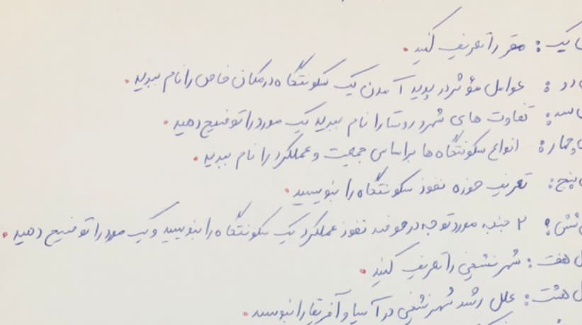 یک: مقر را تعریف کنید.
دو: عوامل مؤثر در پدید آمدن یک سکونتگاه در مکان خاص را نام ببرید.
سه: تفاوت های شهر و روستا را نام ببرید یک مورد را توضیح دهید.
چهار: انواع سکونتگاه ها براساس جمعیت و عملکرد را نام ببرید.
پنج: تعریف حوزه نفوذ سکونتگاه را بنویسید.
شش: ۲ جنبه مورد توجه در حوضه نفوذ عملکرد یک سکونتگاه را بنویسید و یک مورد را توضیح دهید.
هفت: شهرنشینی را تعریف کنید.
هشت: علل رشد شهرنشینی در آسیا و آفریقا را بنویسید.